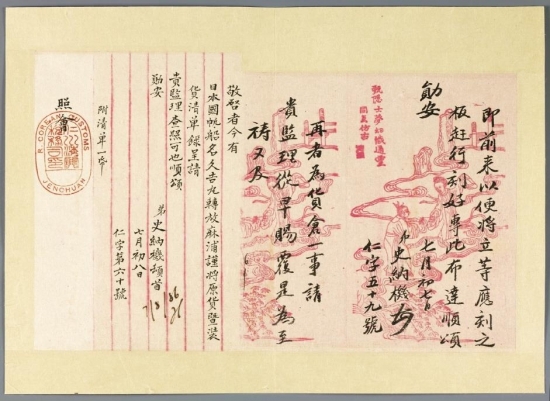 即前来以便將立等應刻之
板赶行刻好專此布達順頌
勛安
七月初七日
弟史納機
仁字五十九號
再者為貨倉一事請
貴監理從早賜覆是為至
禱又及
敬啓者今有
日本國帆船名久吉丸轉放麻浦謹將原貨暨裝
貨清單錄呈請
貴監理查照可也順頌
勛安
弟史納機頓首
七月初八日
仁字第六十號
附清單一帋
照會
R. COREAN CUSTOMS
JENCHUAN